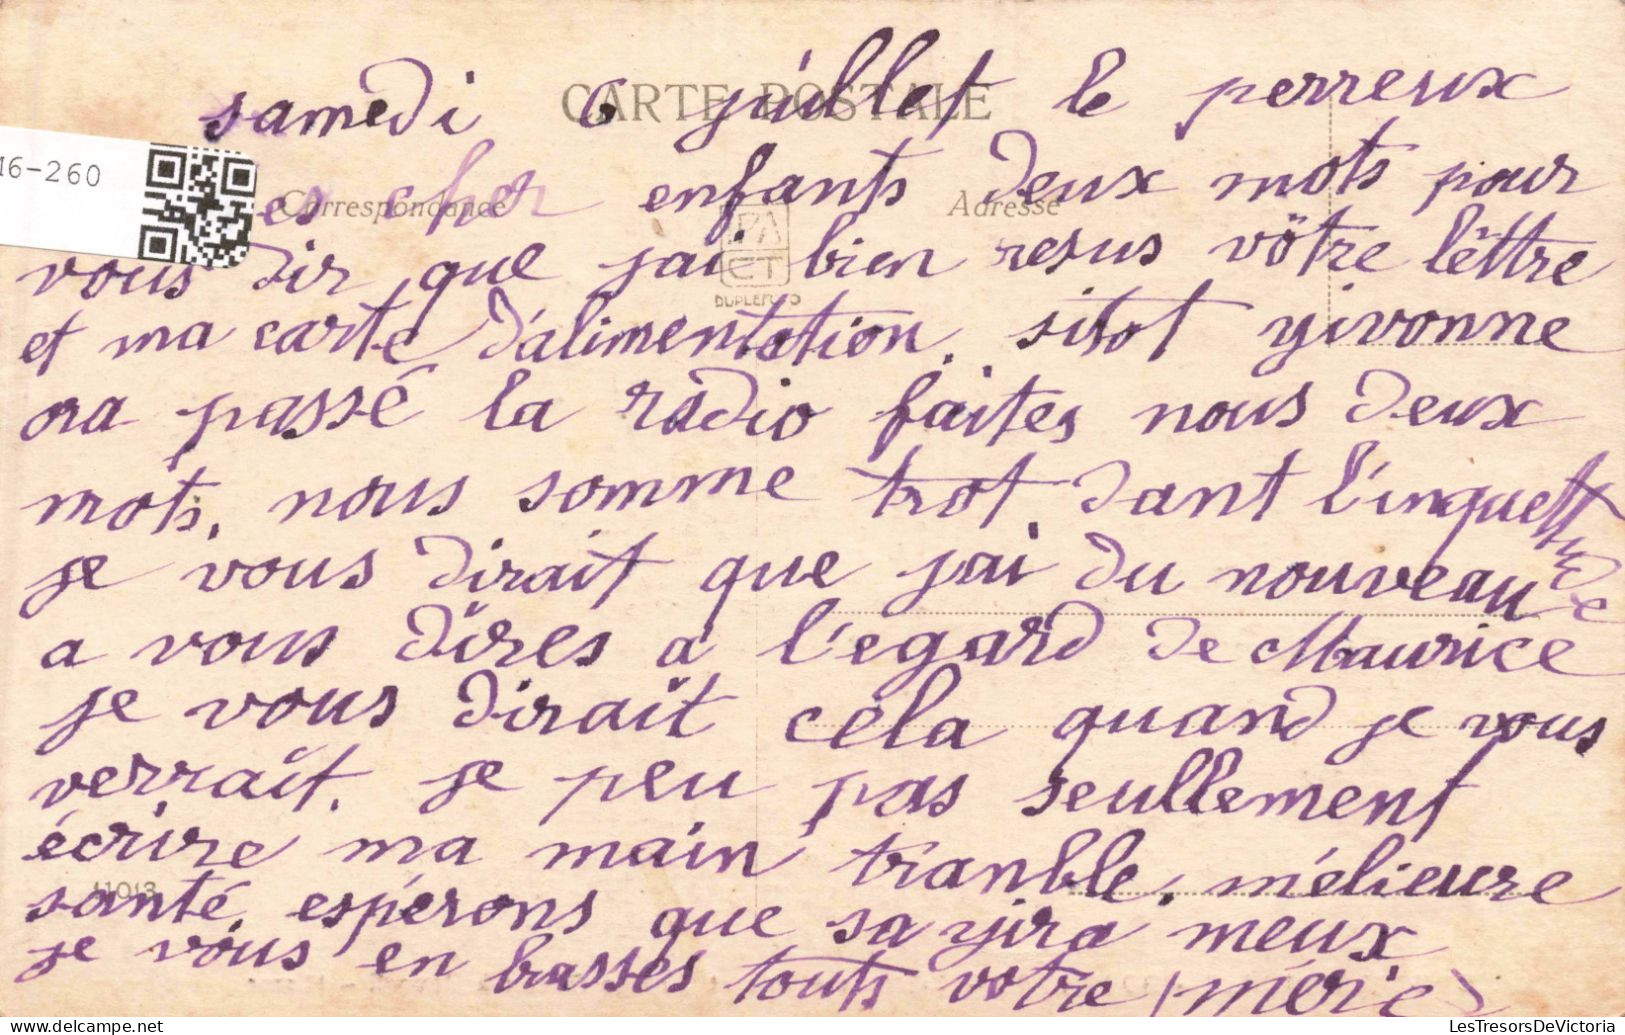 CARTE POSTALE
samedi 6 juillet le perreux
M6-260
Correspondance
Adresse
es cher enfants deux mots pour
PA
CT
DUPLEP
vous dir que jai bien resus vôtre lêttre
et ma carte d'alimentation. sitot yivonne
ora passé la radio faites nous deux
mots. nous somme trot dant l'inquettude
je vous dirait que jai du nouveau
a vous dires a l'egard de Maurice
je vous dirait cela quand je vous
verrait. je peu pas seullement
écrire ma main tranble. mélieure
11013
santé. espérons que sa yira meux
je vous en brasses touts votre (mérie)
LesTresorsDeVictoria